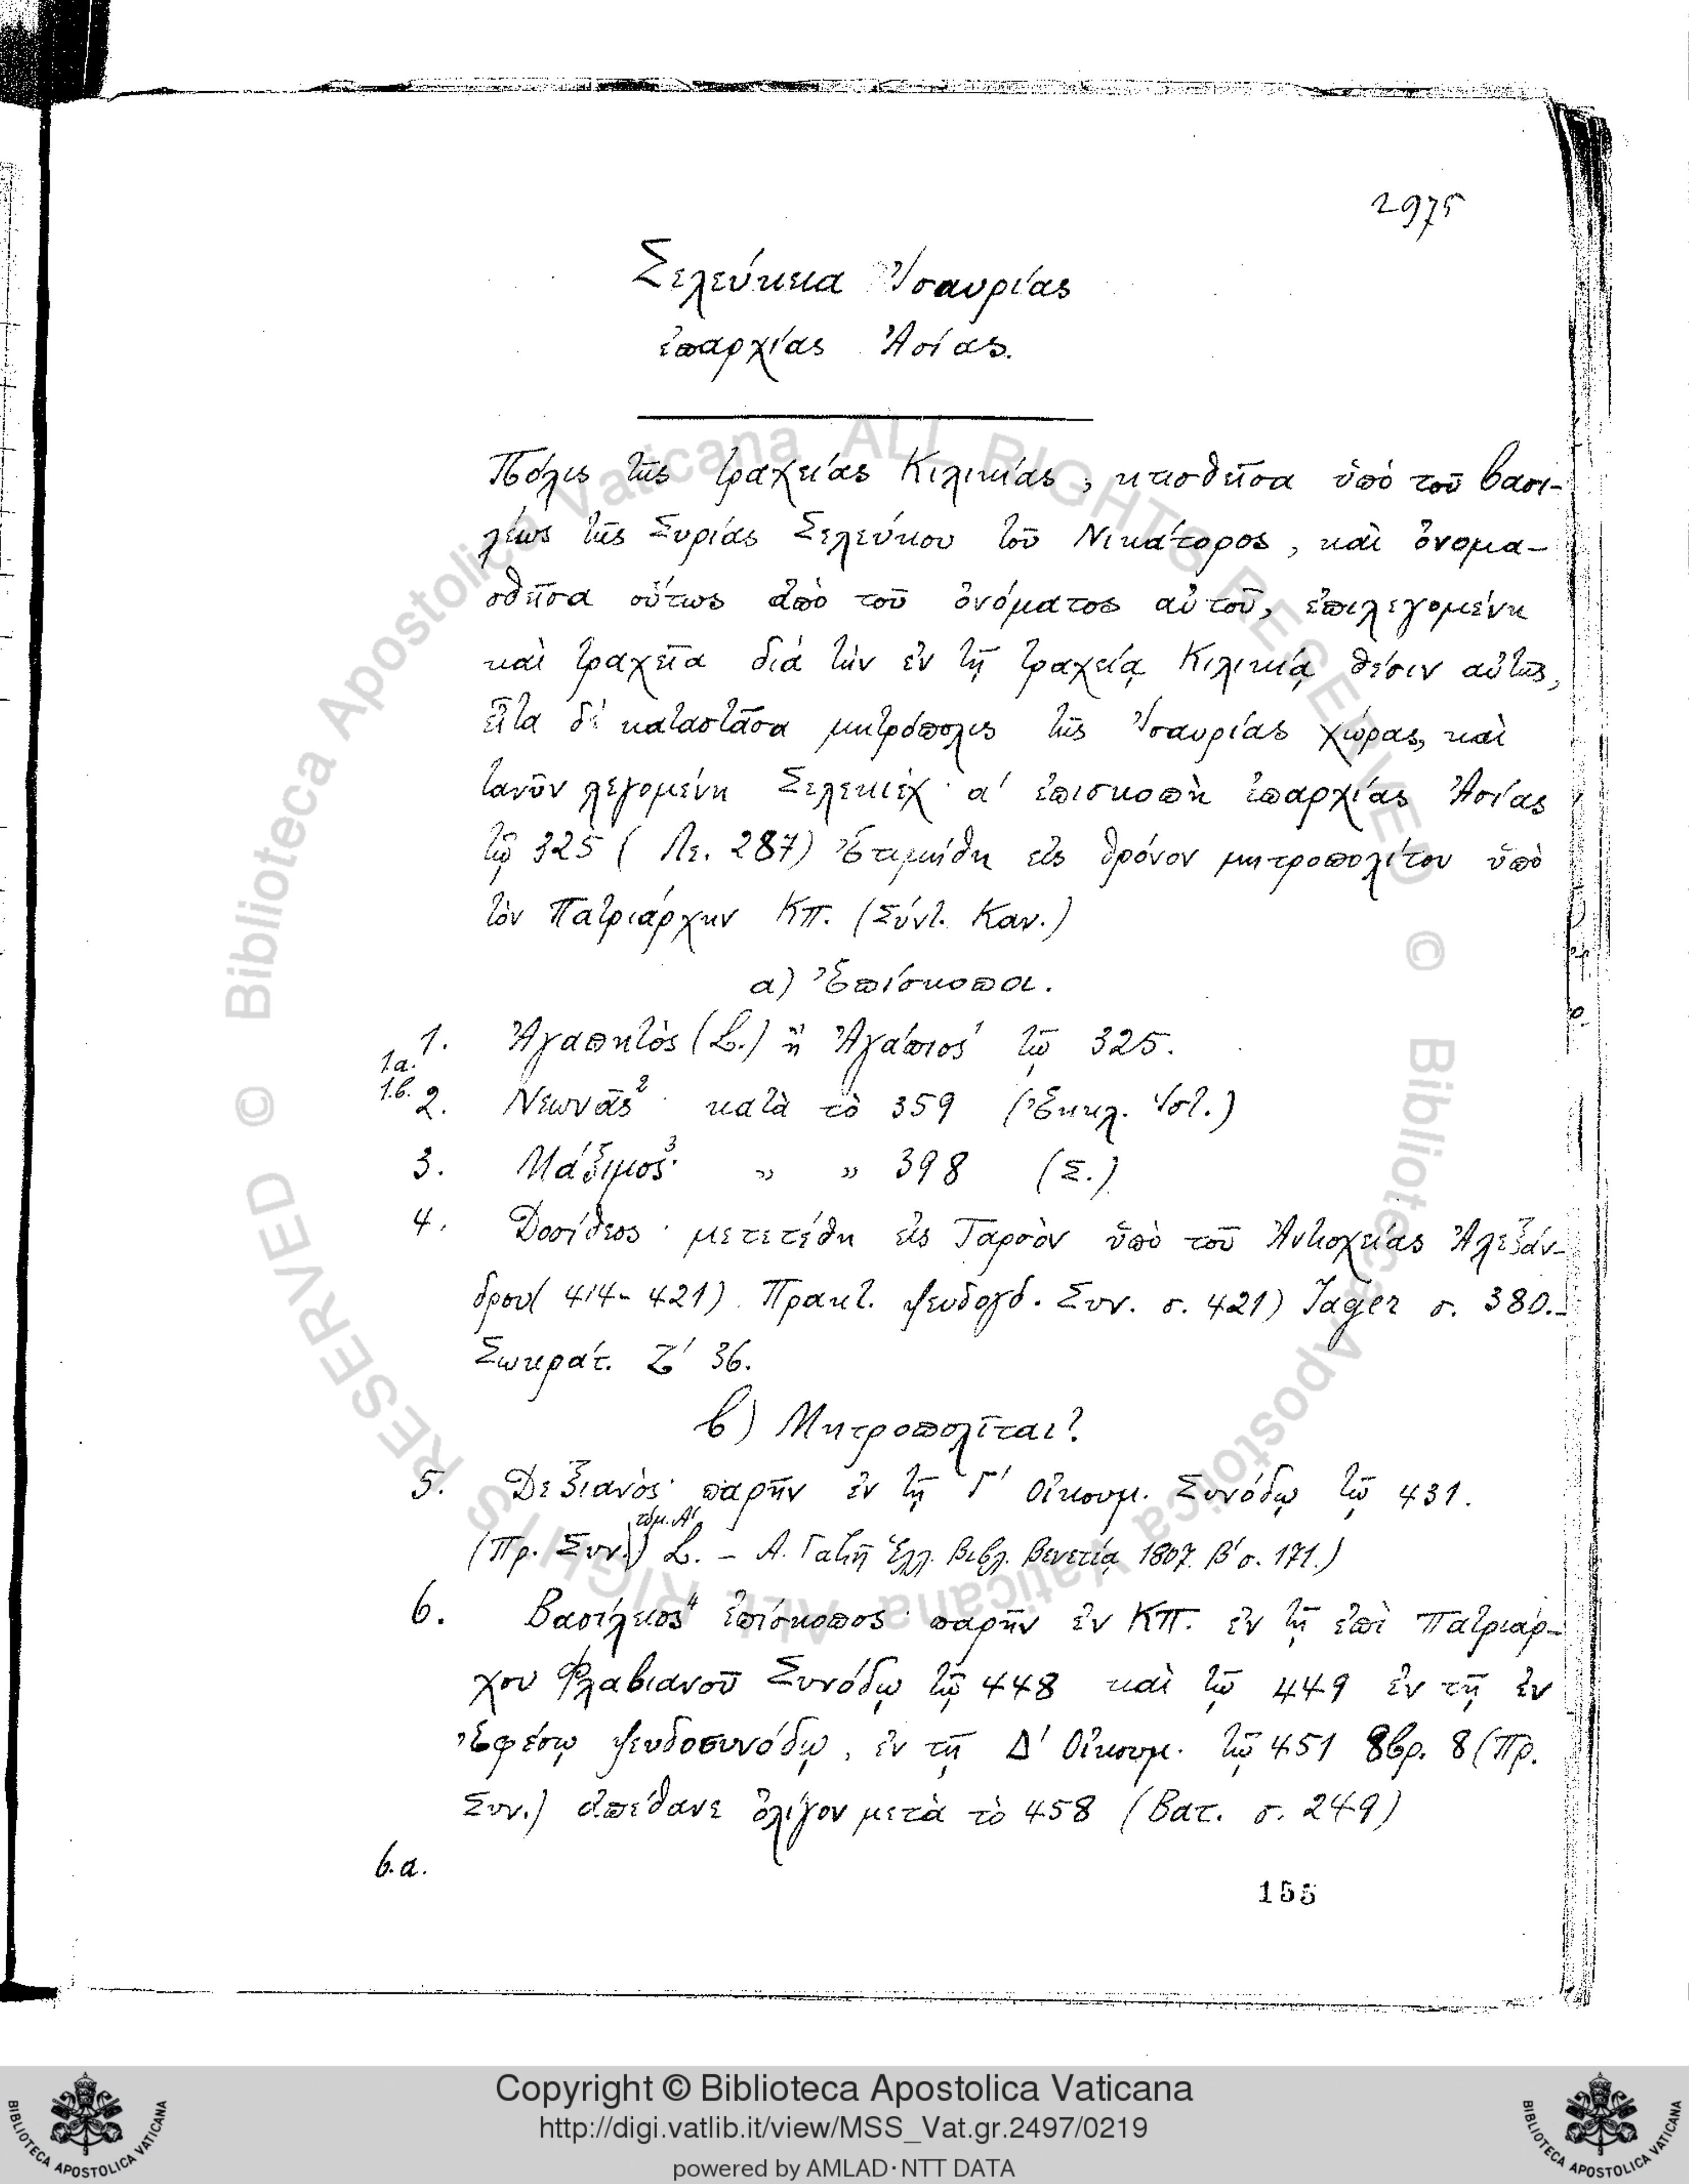 2975
Σελεύκεια Ἰσαυρίας
ἐπαρχίας Ἀσίας.
Πόλις τῆς τραχείας Κιλικίας, κτισθεῖσα ὑπό τοῦ βασι-
λέως τῆς Συρίας Σελεύκου τοῦ Νικάτορος, καὶ ὀνομα-
σθεῖσα οὕτως ἀπὸ τοῦ ὀνόματος αὐτοῦ, ἐπιλεγομένη
καὶ τραχεῖα διά τὴν ἐν τῇ τραχείᾳ Κιλικίᾳ θέσιν αὐτῆς,
εἶτα δὲ καταστᾶσα μητρόπολις τῆς Ἰσαυρίας χώρας, καὶ
τανῦν λεγομένη Σελεκιέχ· α' ἐπισκοπὴ ἐπαρχίας Ἀσίας
τῷ 325 (Λε. 287) Ἐτιμήθη εἰς θρόνον μητροπολίτου ὑπὸ
τὸν Πατριάρχην ΚΠ. (Σύντ. Καν.)
α) Ἐπίσκοποι.
1. Ἀγαπητὸς (L.) ἢ Ἀγάπιος¹ τῷ 325.
1.α.
1.β. 2. Νεωνᾶς²· κατὰ τὸ 359 (Ἐκκλ. Ἱστ.)
3. Μάξιμος³· » » 398 (Σ.)
4. Δοσίθεος· μετετέθη εἰς Ταρσὸν ὑπὸ τοῦ Ἀντιοχείας Ἀλεξάν-
δρου (414-421). Πρακτ. ψευδογδ. Συν. σ. 421) Jager σ. 380.-
Σωκράτ. Ζ' 36.
β) Μητροπολῖται?
5. Δεξιανὸς· παρῆν ἐν τῇ Γ' Οἰκουμ. Συνόδῳ τῷ 431.
(Πρ. Συν.) τόμ. Α' L. – Α. Γαζῆ Ἑλλ. Βιβλ. Βενετία 1807. Β' σ. 171.)
6. Βασίλειος⁴ ἐπίσκοπος· παρῆν ἐν ΚΠ. ἐν τῇ ἐπὶ Πατριάρ-
χου Φλαβιανοῦ Συνόδῳ τῷ 448 καὶ τῷ 449 ἐν τῇ ἐν
Ἐφέσῳ ψευδοσυνόδῳ, ἐν τῇ Δ' Οἰκουμ. τῷ 451 8βρ. 8 (Πρ.
Συν.) ἀπέθανε ὀλίγον μετὰ τὸ 458 (Βατ. σ. 249)
6.α.
155
© Biblioteca Apostolica Vaticana ALL RIGHTS RESERVED
© Biblioteca Apostolica Vaticana ALL RIGHTS RESERVED
Copyright © Biblioteca Apostolica Vaticana
http://digi.vatlib.it/view/MSS_Vat.gr.2497/0219
powered by AMLAD·NTT DATA
BIBLIOTECA APOSTOLICA VATICANA
BIBLIOTECA APOSTOLICA VATICANA